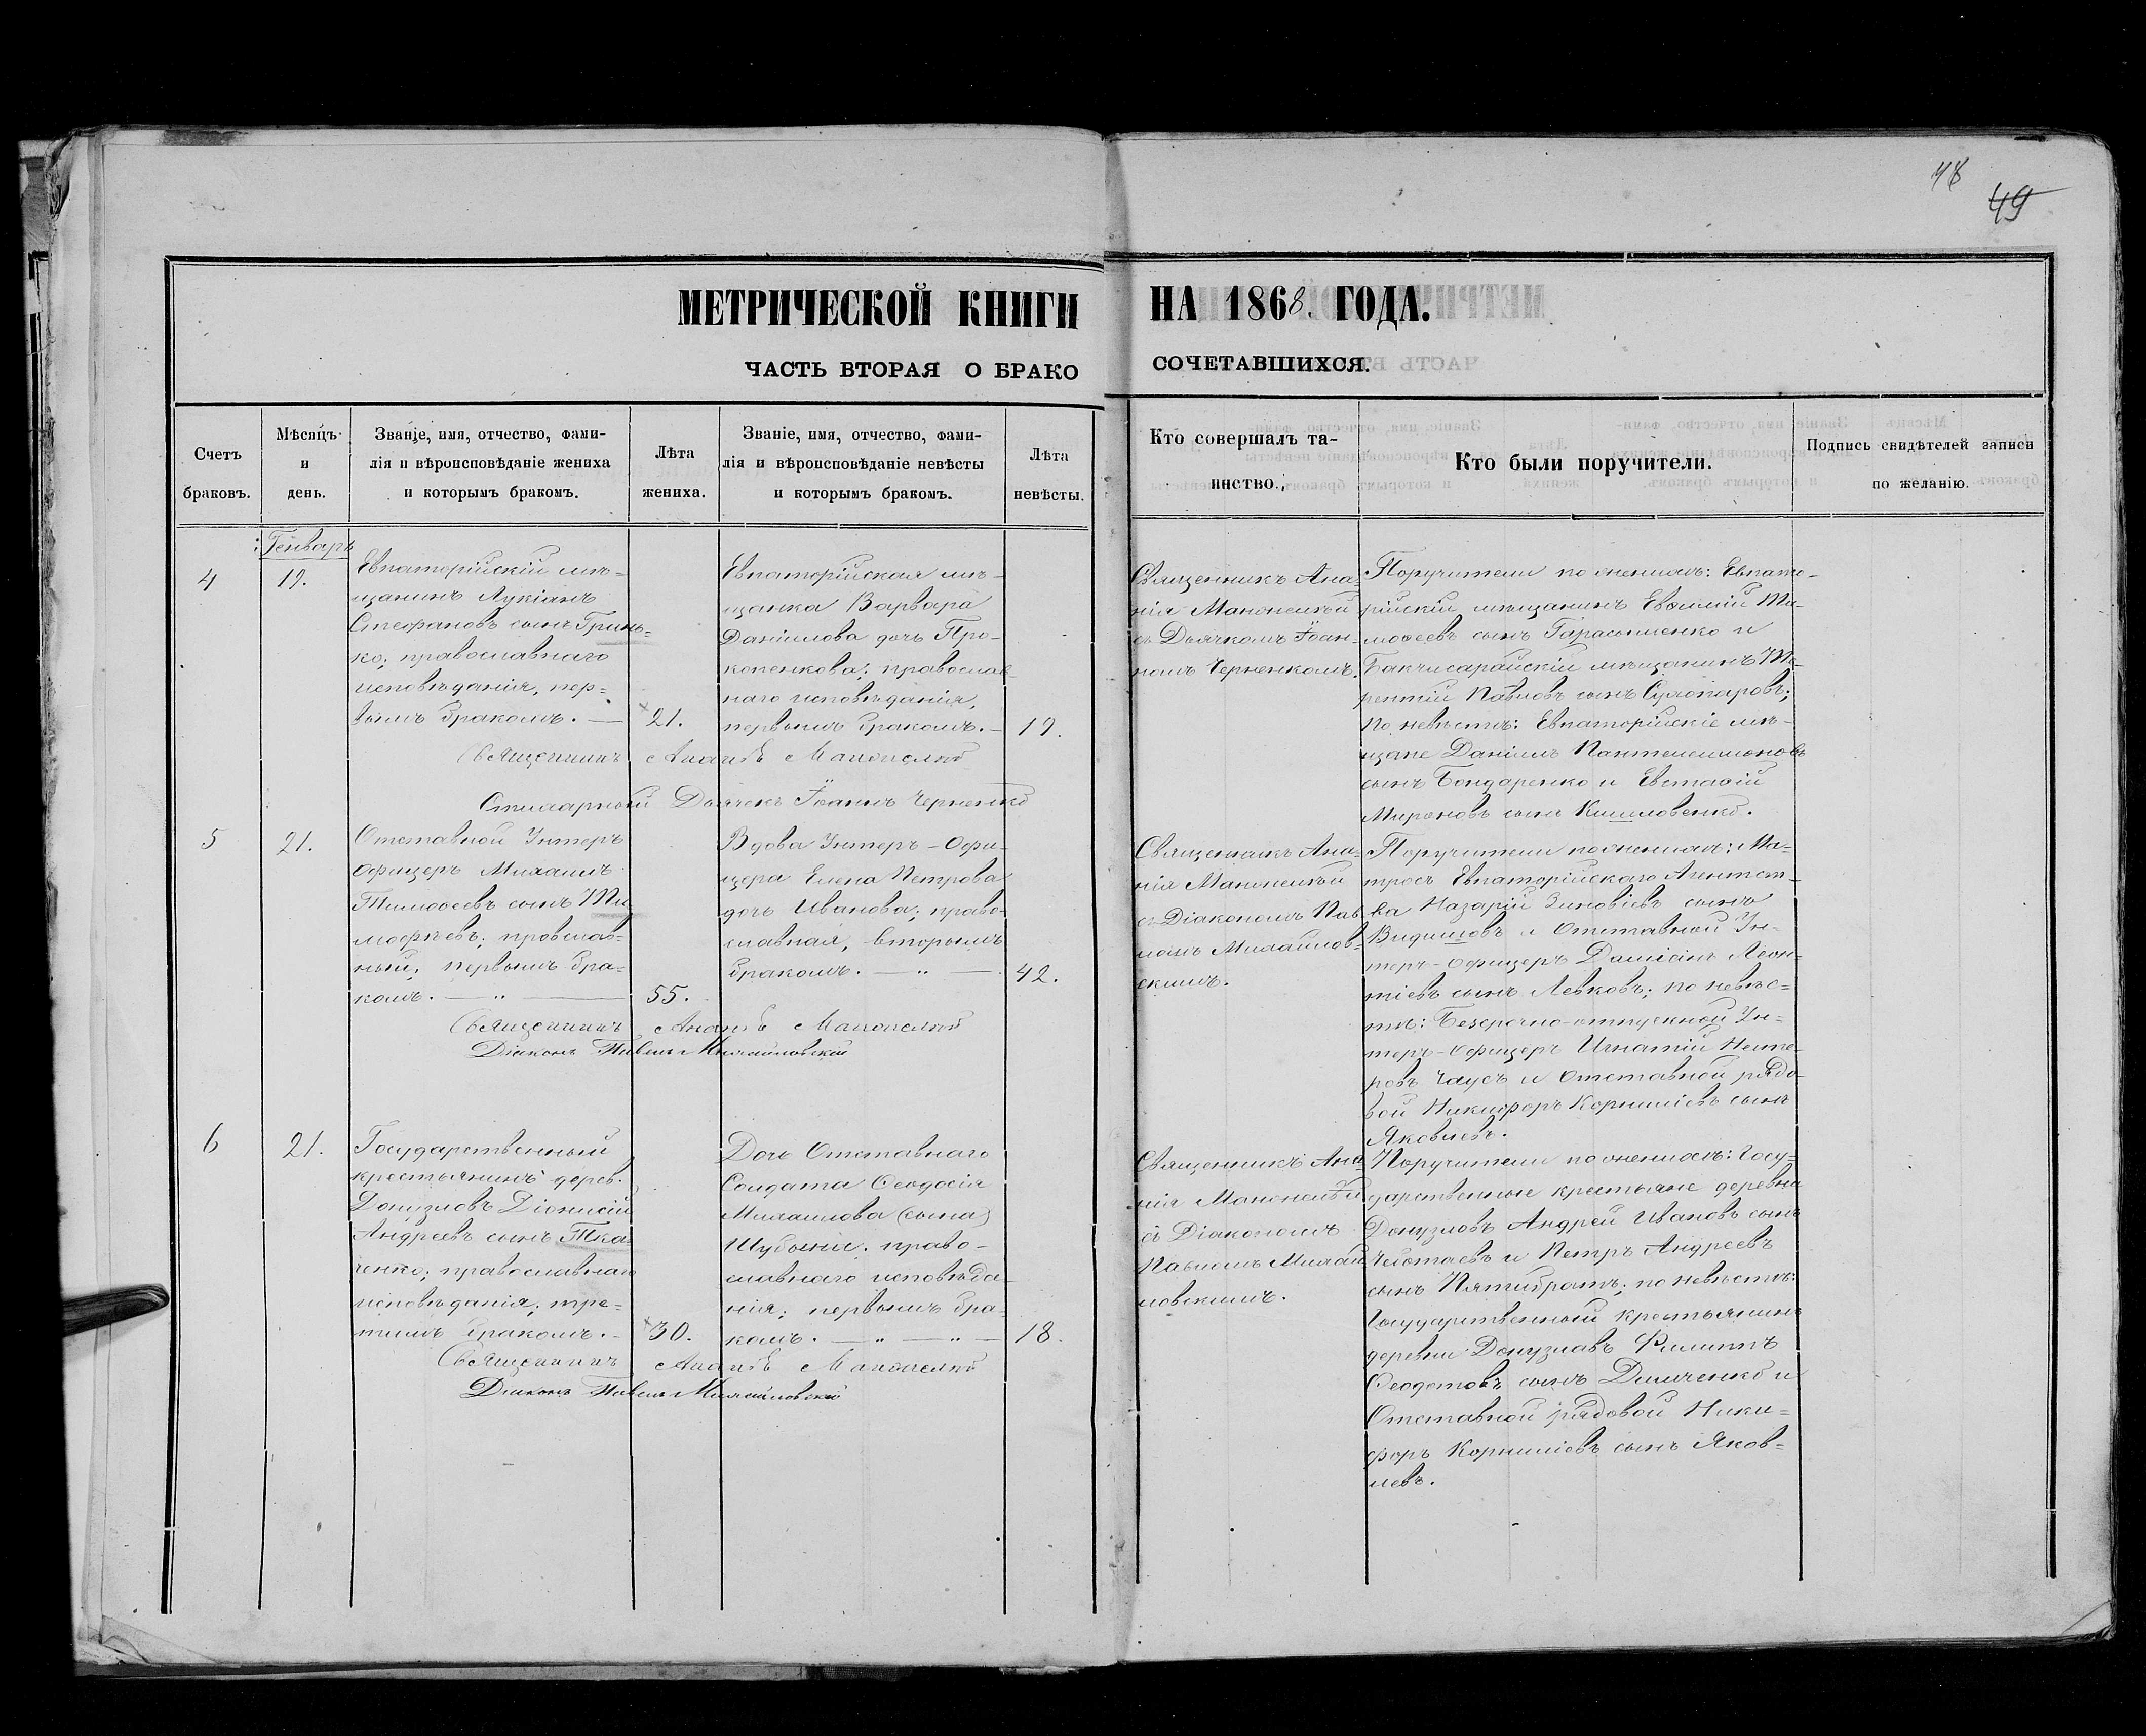 48
49
МЕТРИЧЕСКОЙ КНИГИ НА 1868. ГОДА.
ЧАСТЬ ВТОРАЯ О БРАКО СОЧЕТАВШИХСЯ.
Счетъ
браковъ.
Мѣсяцъ
и
день.
Званіе, имя, отчество, фами-
лія и вѣроисповѣданіе жениха
и которымъ бракомъ.
Лѣта
жениха.
Званіе, имя, отчество, фами-
лія и вѣроисповѣданіе невѣсты
и которымъ бракомъ.
Лѣта
невѣсты.
Кто совершалъ та-
инство.
Кто были поручители.
Подпись свидѣтелей записи
по желанію.
Генварь
4
19.
Евпаторійскій мѣ-
щанинъ Лукіанъ
Стефановъ сынъ Гринь-
ко; православнаго
исповѣданія, пер-
вымъ бракомъ.
21.
Евпаторійская мѣ-
щанка Варвара
Даніилова дочь Про-
копенкова; православ-
наго исповѣданія,
первымъ бракомъ.
19.
Священникъ Ана-
нія
съ Дьячкомъ Іоан-
номъ Черненкомъ.
Поручители по женихѣ: Евпато-
рійскій мѣщанинъ Евфимій Ти-
мофеевъ сынъ Гарасименко и
Бакчисарайскій мѣщанинъ Те-
рентій Павловъ сынъ
по невѣстѣ: Евпаторійскіе мѣ-
щане Даніилъ Пантелеимоновъ
сынъ Бондаренко и Евстафій
Мироновъ сынъ
Священникъ Ананія
Дьячекъ Іоаннъ Черненко
5
21.
Отставной Унтеръ
Офицеръ Михаилъ
Тимофеевъ сынъ Ти-
мофѣевъ; православ-
ный; первымъ бра-
комъ.
55.
Вдова Унтеръ-Офи-
цера Елена Петрова
дочь Иванова; право-
славная, вторымъ
бракомъ.
42.
Священникъ Ана-
нія
съ Діакономъ Пав-
ломъ Михайлов-
скимъ.
Поручители по женихѣ: Ма-
тросъ Евпаторійскаго Агентст-
ва Назарій Зиновіевъ сынъ
и Отставной Ун-
теръ-Офицеръ Даміанъ Леон-
тіевъ сынъ Левковъ; по невѣс-
тѣ: Безсрочно-отпускной Ун-
теръ-Офицеръ Игнатій
Чаусъ и Отставной рядо-
вой Никифоръ Корниліевъ сынъ
Яковлевъ.
Священникъ Ананія
Діаконъ Павелъ Михайловскій
6
21.
Государственный
крестьянинъ дерев.
Донузловъ Діонисій
Андреевъ сынъ Тка-
ченко; православнаго
исповѣданія; тре-
тимъ бракомъ.
30.
Дочь Отставнаго
Солдата Феодосія
Михаилова (сына)
православнаго исповѣда-
нія; первымъ бра-
комъ.
18.
Священникъ Ана-
нія
съ Діакономъ
Павломъ Михай-
ловскимъ.
Поручители по женихѣ: Госу-
дарственные крестьяне деревни
Донузловъ Андрей Ивановъ сынъ
Чеботаевъ и Петръ Андреевъ
сынъ Пятибратъ; по невѣстѣ:
Государственный крестьянинъ
деревни Донузлавъ Филиппъ
Феодотовъ сынъ и
Отставной рядовой Ники-
форъ Корниліевъ сынъ Яков-
левъ.
Священникъ Ананія
Діаконъ Павелъ Михайловскій